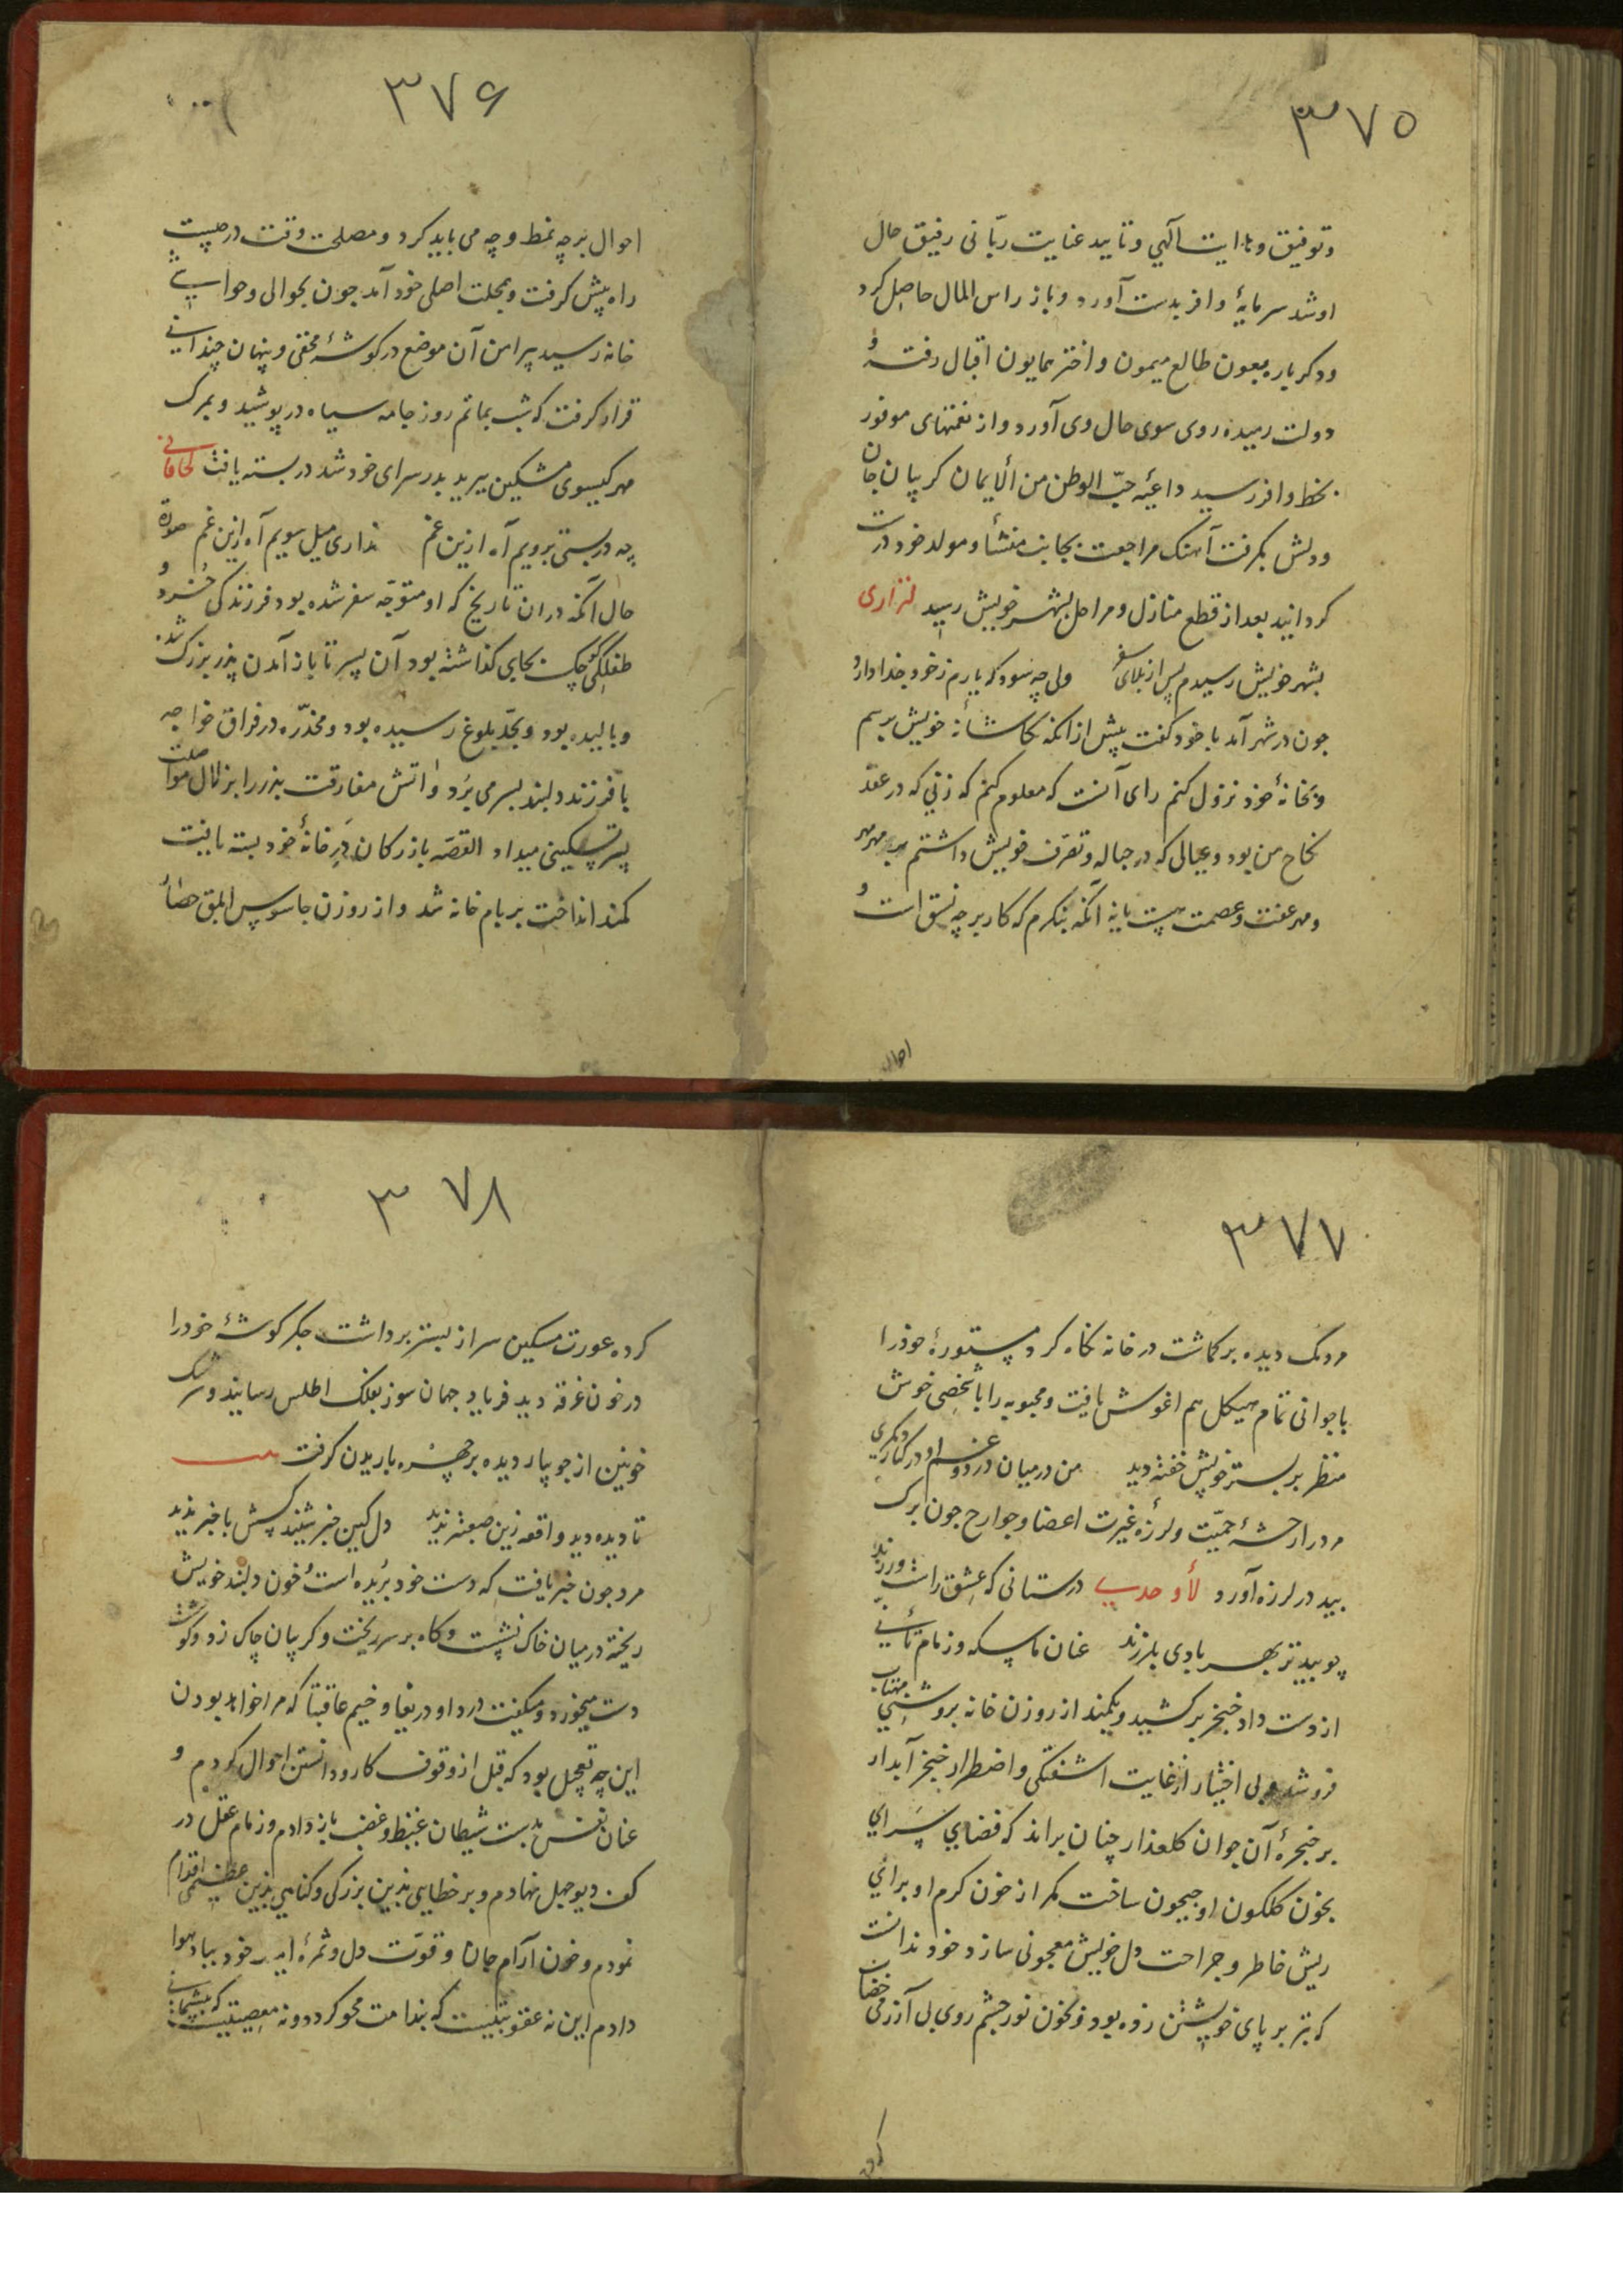 ۳۷۵
وتوفیق وهدایت آلهی وتایید عنایت ربّانی رفیق حال
اوشد سرمایۀ وافر بدست آورد وباز راس المال حاصل کرد
ودکر بار بیعون طالع میمون واختر همایون اقبال رفتۀ و
دولت رمیده روی سوی حال وی آورد واز نعمتهای موفور
بخط وافر رسید داعیۀ حبّ الوطن من ألایمان کریبان جان
ودلش بکرفت آهنک مراجعت بجانب منشأ ومولد خود درست
کردانید بعد از قطع منازل ومراحل بشهر خویش رسید لنزاری
بشهر خویش رسیدم پس از بلای سفر ولی چه سود که یارم ز خود جدا دارد
جون در شهر آمد با خود کفت پیش از انکه بکاشانۀ خویش برسم
وبخانۀ خود نزول کنم رای آنست که معلوم کنم که زنی که در عقد
نکاح من بود وعیالی که در حباله وتصرف خویش داشتم بر مهر
ومهر عفت وعصمت هست یا نه آنکه بنکرم که کار بر چه نسق است و
احوال
۳۷۶
احوال بر چه نمط وچه می باید کرد ومصلحت وقت در چیست
راه پیش کرفت وبمحلت اصلی خود آمد جون بحوالی وحواشی
خانه رسید پیرامن آن موضع در کوشۀ مخفی وپنهان چندانی
قرار کرفت که شب بماتم روز جامه سیاه در پوشید وبمرک
مهر کیسوی مشکین ببرید بدر سرای خود شد در بسته یافت لخاقانی
چه در بستی برویم آه ازین غم نداری میل سویم آه ازین غم صورة
حال آنکه دران تاریخ که او متوجّه سفر شده بود فرزندکی خُرد و
طفلکی کوچک بجای کذاشته بود آن پسر تا باز آمدن پذر بزرک شده
وبالیده بود وبحدّ بلوغ رسیده بود ومخدّره در فراق خواجه
با فرزند دلبند بسر می برد واتش مفارقت پذر را بزلال مواصلت
پسر تسکینی میداد القصّه بازرکان دَرِ خانۀ خود بسته یافت
کمند انداخت بر بام خانه شد واز روزن جاسوس ابلق حصار
۳۷۷
مردمک دیده برکماشت در خانه نکاه کرد مستورۀ خود را
با جوانی تمام هیکل هم اغوش یافت ومحبوبه را با شخصی خوش
منظر بر بستر خویش خفته دید من در میان درد وغم او در کنار دیکری
مرد را رعشۀ حمیّت ولرزۀ غیرت اعضا وجوارح جون برک
بید در لرزه آورد لأوحدی درستانی که عشق راست ورزند
چو بید تر بهر بادی بلرزند عنان تماسک وزمام تأنّی
از دست داد خنجر برکشید وبکمند از روزن خانه بروشنیِ مهتاب
فرو شد وبی اختیار از غایت اشفتکی واضطرار خنجر آبدار
بر خنجرۀ آن جوان کلعذار چنان براند که فضای سَرای
بخون کلکون او جیحون ساخت مکر از خون کرم او برای
ریش خاطر وجراحت دل خویش معجونی سازد خود ندانست
که تبر بر پای خویشتن زده بود وبخون نور چشم روی بی آزرمی خضاب
کرده
۳۷۸
کرده عورت مسکین سر از بستر برداشت جکر کوشۀ خود را
در خون غرقه دید فریاد جهان سوز بفلک اطلس رسانید وسرشک
خونین از جویبار دیده بر چهره باریدن کرفت بیت
تا دیده دید واقعه زین صعبتر ندید دل کین خبر شنید کسش با خبر ندید
مرد جون خبر یافت که دست خود بریده است وخون دلبند خویش
ریخته در میان خاک نشست وکاه بر سر ریخت وکریبان چاک زد وکوشت
دست میخورد ومیکفت دردا ودریغا وخیم عاقبتا که مرا خواهد بودن
این چه تعجیل بود که قبل از وقوف کار ودانستن احوال کردم و
عنان نفس بدست شیطان غیظ وغضب باز دادم وزمام عقل در
کف دیو جهل نهادم وبر خطایی بدین بزرکی وکناهی بذین عظیمی اقدام
نمودم وخون آرام جان وقوّت دل وثمرۀ امید خود بباد هوا
دادم این نه عقوبتیست که بندامت محو کردد ونه معصیتیست که بپشیمانی